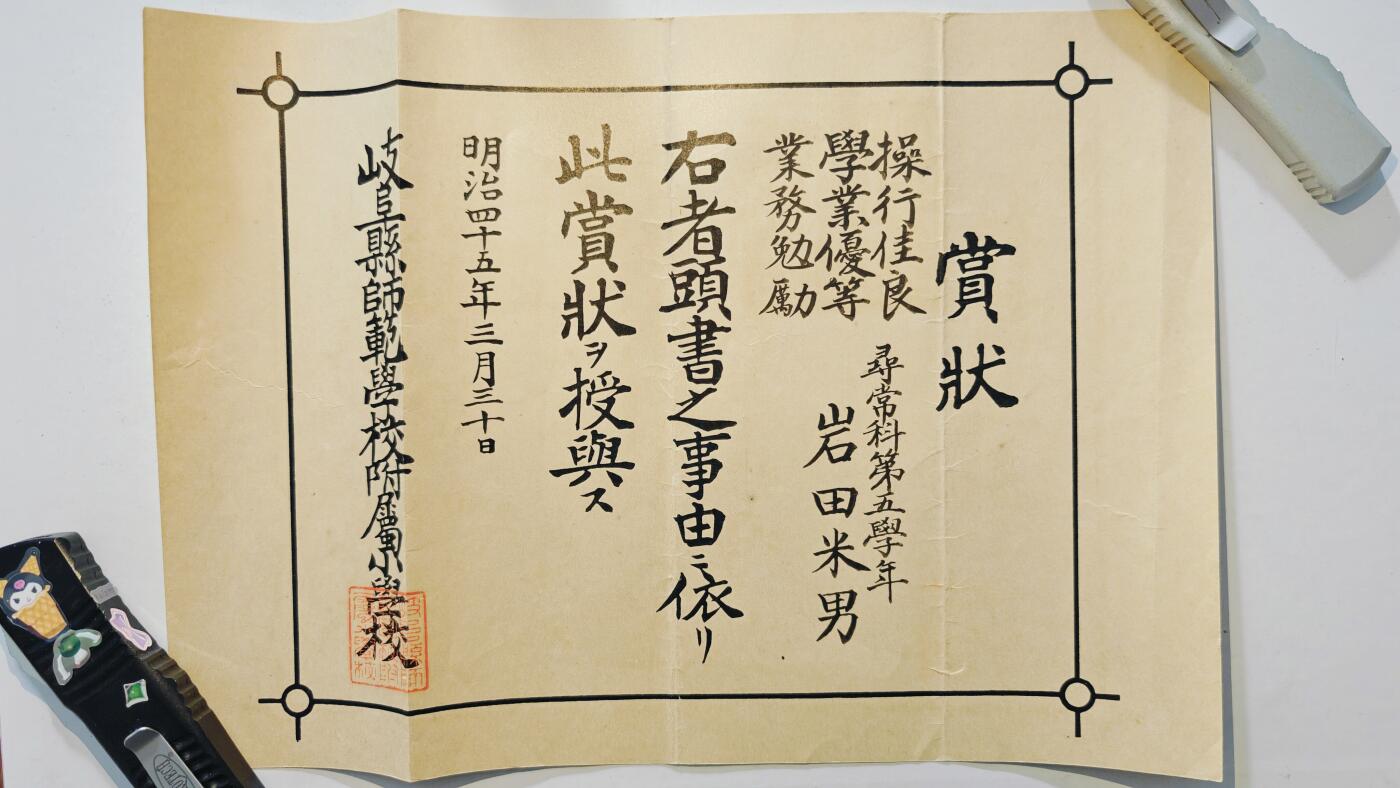 賞狀
操行佳良
學業優等
業務勉勵
尋常科第五學年
岩田米男
右者頭書之事由ニ依リ
此賞狀ヲ授與ス
明治四十五年三月三十日
岐阜縣師範學校附屬小學校